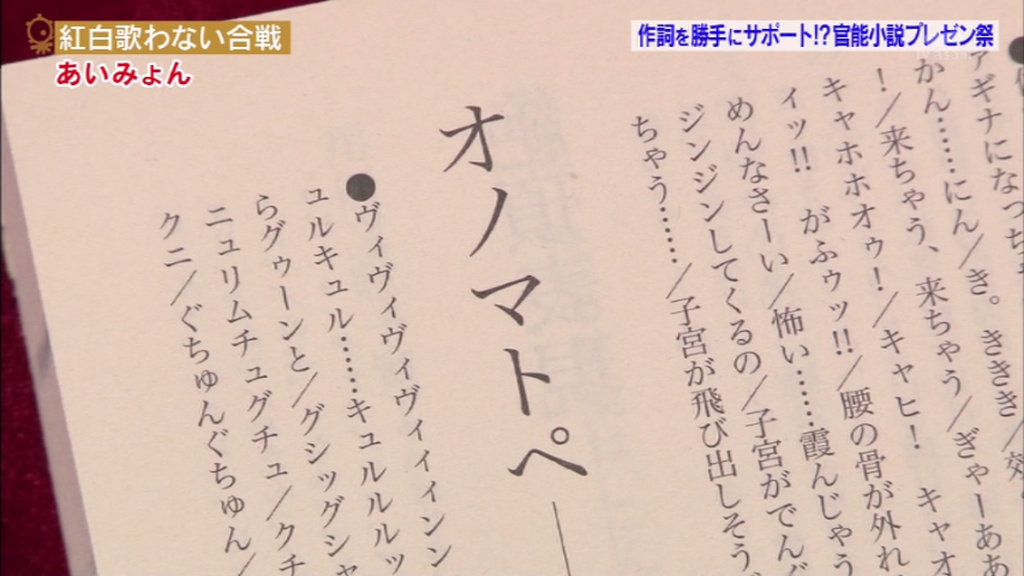 紅白歌わない合戦
あいみょん
作詞を勝手にサポート!?官能小説プレゼン祭
アギナになっち
がん……にん／き。きききき／郊
！／来ちゃう、来ちゃう／ぎゃーああ
キャホホオゥ！／キャヒ！　キャオ
ィッ!!　がふゥッ!!／腰の骨が外れ
めんなさーい／怖い……霞んじゃう
ジンジンしてくるの／子宮がでんぐ
ちゃう……／子宮が飛び出しそう
オノマトペ―
●ヴィヴィヴィヴィィィンン
ュルキュル……キュルルルッ
らグゥーンと／グシッグシャ
ニュリムチュグチュ／クチ
クニ／ぐちゅんぐちゅん／